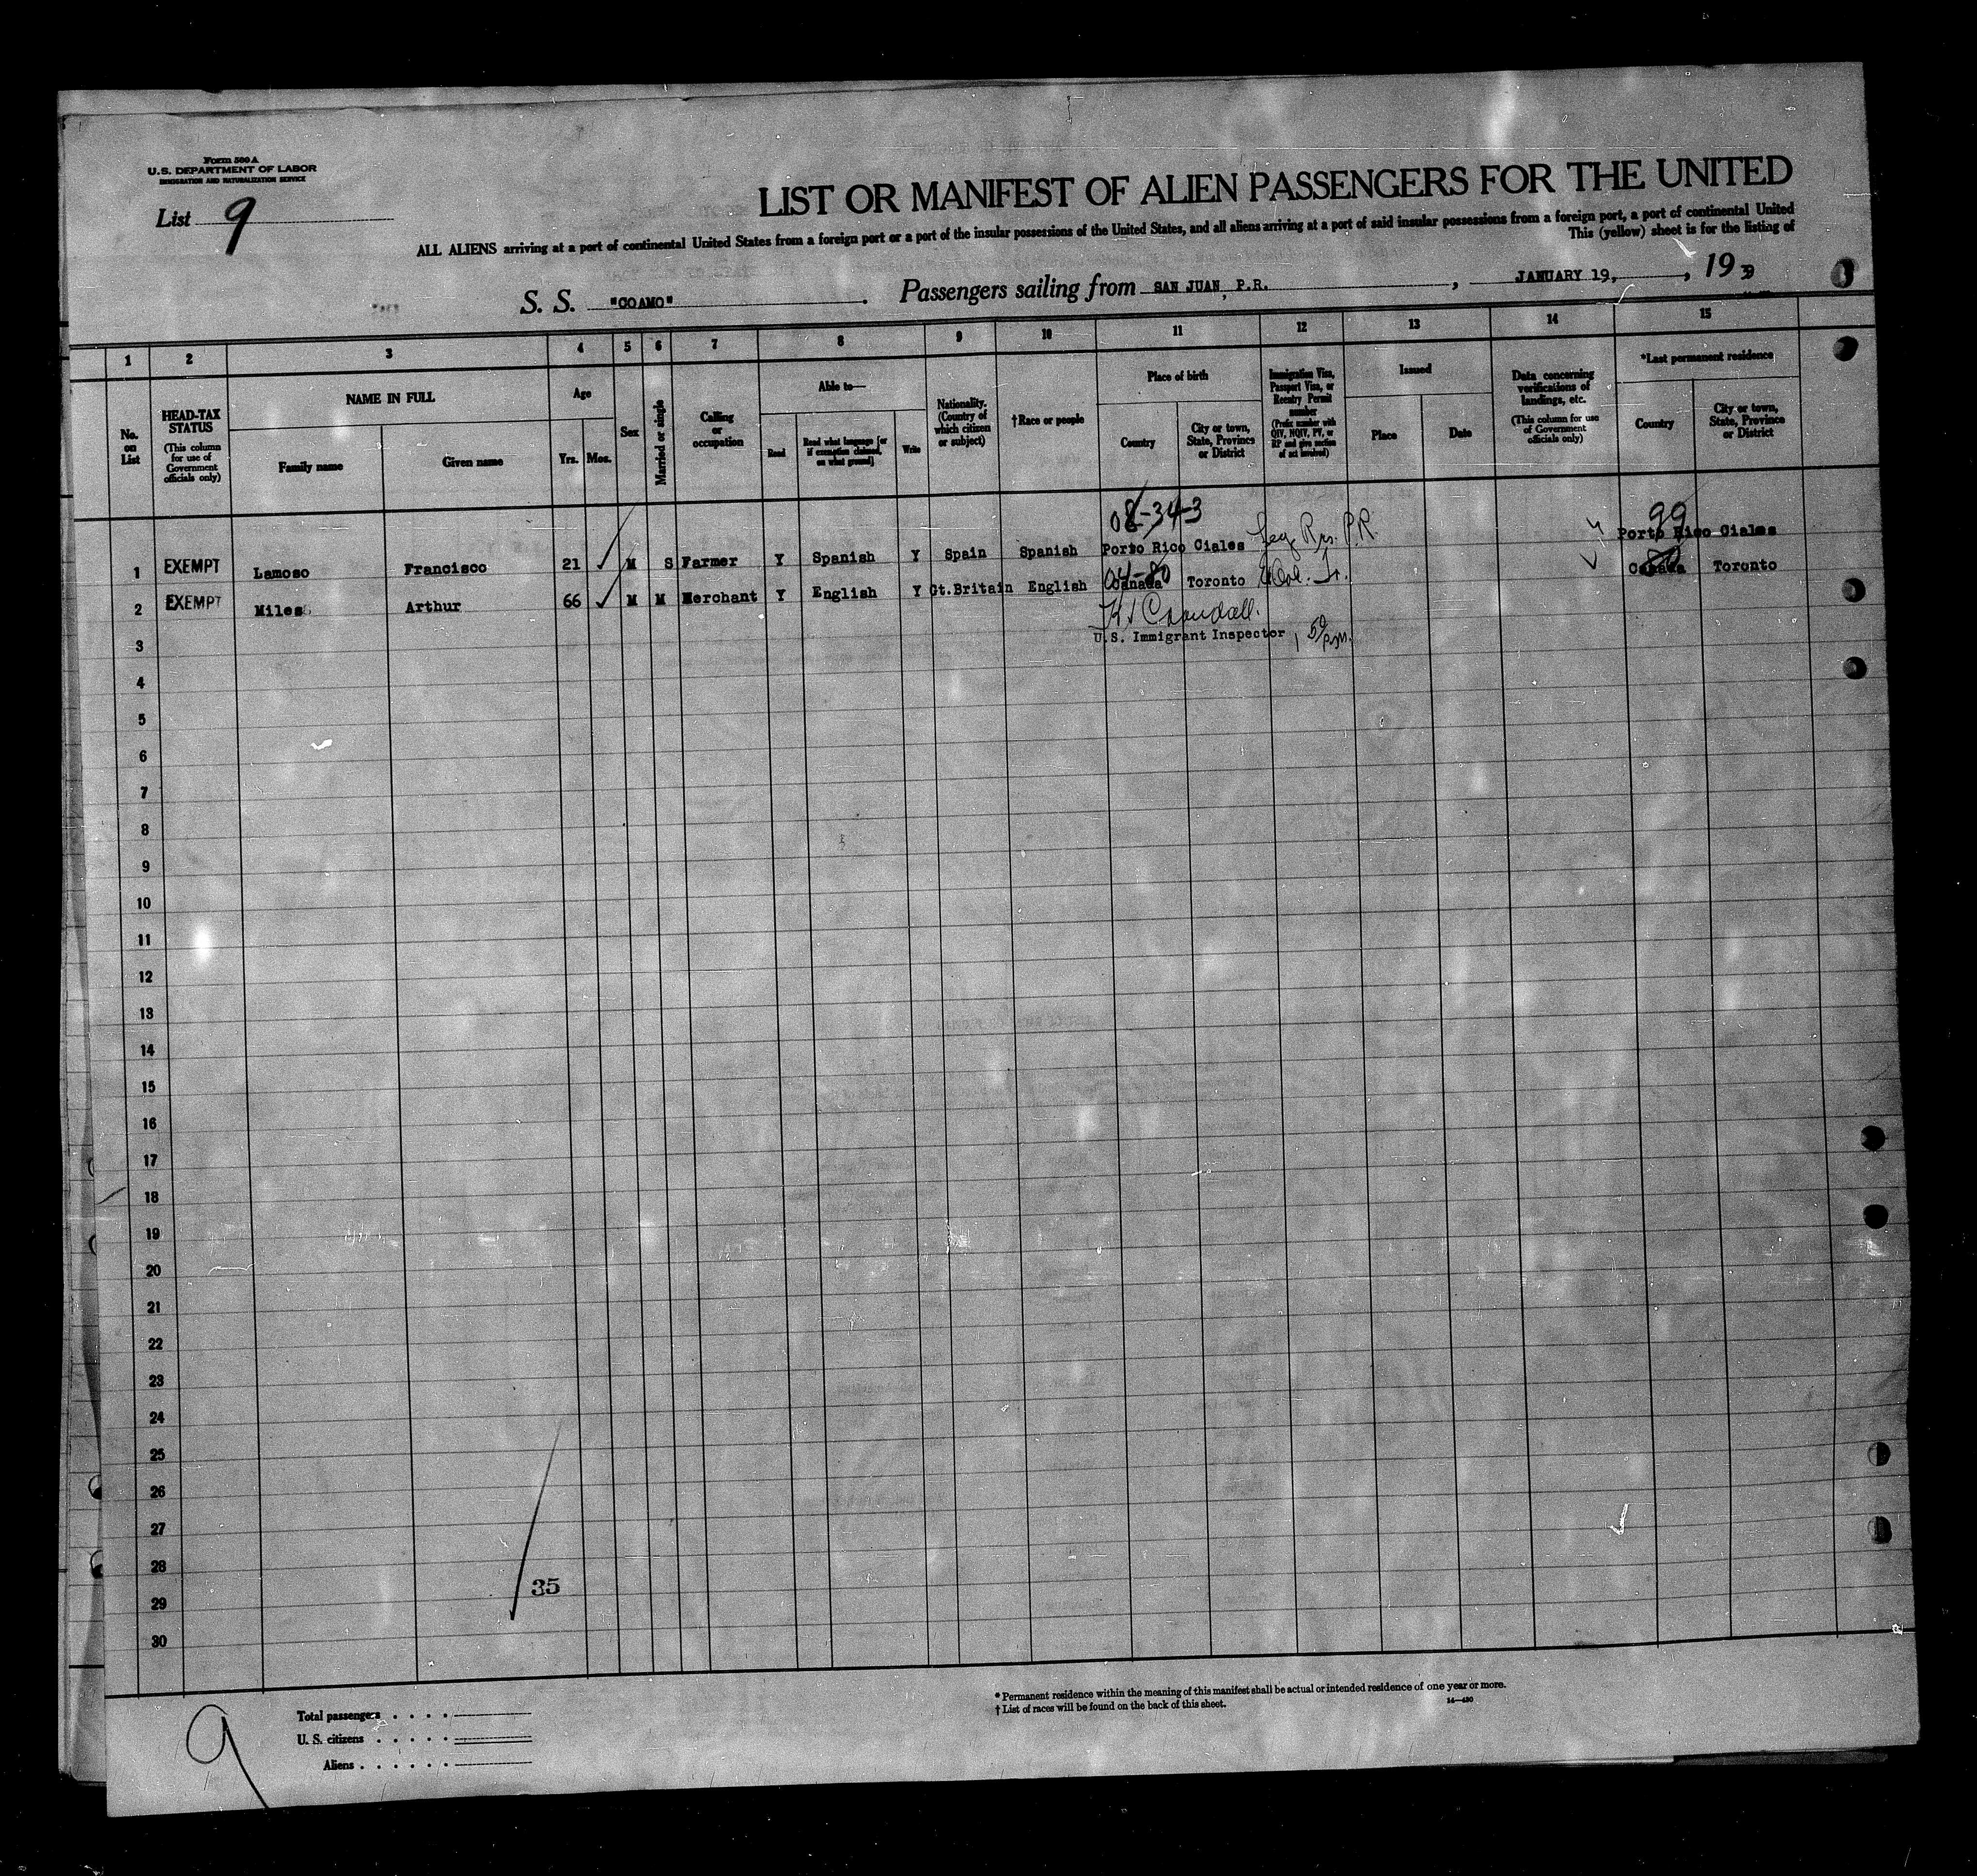 Form 500 A
U.S. DEPARTMENT OF LABOR
IMMIGRATION AND NATURALIZATION SERVICE
List 9
LIST OR MANIFEST OF ALIEN PASSENGERS FOR THE UNITED
ALL ALIENS arriving at a port of continental United States from a foreign port or a port of the insular possessions of the United States, and all aliens arriving at a port of said insular possessions from a foreign port, a port of continental United
This (yellow) sheet is for the listing of
S. S. "COAMO". Passengers sailing from SAN JUAN, P.R., JANUARY 19, , 19 39
1 2 3 4 5 6 7 8 9 10 11 12 13 14 15
No. on List
HEAD-TAX STATUS
(This column for use of Government officials only)
NAME IN FULL
Family name
Given name
Age
Yrs.
Mos.
Sex
Married or single
Calling or occupation
Able to—
Read
Read what language [or if exemption claimed, on what ground]
Write
Nationality. (Country of which citizen or subject)
†Race or people
Place of birth
Country
City or town, State, Province or District
Immigration Visa, Passport Visa, or Reentry Permit number
(Prefix number with QIV, NQIV, PV, or RP and give section of act involved)
Issued
Place
Date
Data concerning verifications of landings, etc.
(This column for use of Government officials only)
*Last permanent residence
Country
City or town, State, Province or District
08-343
99
1 EXEMPT Lamoso Francisco 21 M S Farmer Y Spanish Y Spain Spanish Porto Rico Ciales Leg. Res. P.R. Porto Rico Ciales
04-80
2 EXEMPT Miles Arthur 66 M M Merchant Y English Y Gt.Britain English Canada Toronto Canada Toronto
Crandall.
3 U.S. Immigrant Inspector 1 50 p.m.
4
5
6
7
8
9
10
11
12
13
14
15
16
17
18
19
20
21
22
23
24
25
26
27
28
35
29
30
* Permanent residence within the meaning of this manifest shall be actual or intended residence of one year or more.
† List of races will be found on the back of this sheet.
14—430
9
Total passengers
U. S. citizens
Aliens